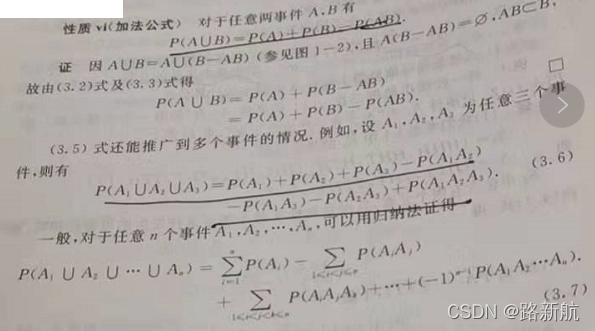 性质 vi(加法公式) 对于任意两事件 A,B 有
P(A∪B)=P(A)+P(B)-P(AB).
证 因 A∪B=A∪(B-AB) (参见图 1-2),且 A(B-AB)=∅,AB⊂B,
故由(3.2)式及(3.3)式得
P(A∪B)=P(A)+P(B-AB)
=P(A)+P(B)-P(AB).
(3.5) 式还能推广到多个事件的情况.例如,设 A₁,A₂,A₃ 为任意三个事
件,则有
P(A₁∪A₂∪A₃)=P(A₁)+P(A₂)+P(A₃)-P(A₁A₂)
-P(A₁A₃)-P(A₂A₃)+P(A₁A₂A₃). (3.6)
一般,对于任意 n 个事件 A₁,A₂,⋯,Aₙ,可以用归纳法证得
P(A₁∪A₂∪⋯∪Aₙ)=∑ᵢ₌₁ⁿP(Aᵢ)-∑₁≤ᵢ<ⱼ≤ₙ P(AᵢAⱼ)
+∑₁≤ᵢ<ⱼ<ₖ≤ₙ P(AᵢAⱼAₖ)+⋯+(-1)ⁿ⁻¹P(A₁A₂⋯Aₙ).
(3.7)
CSDN @路新航